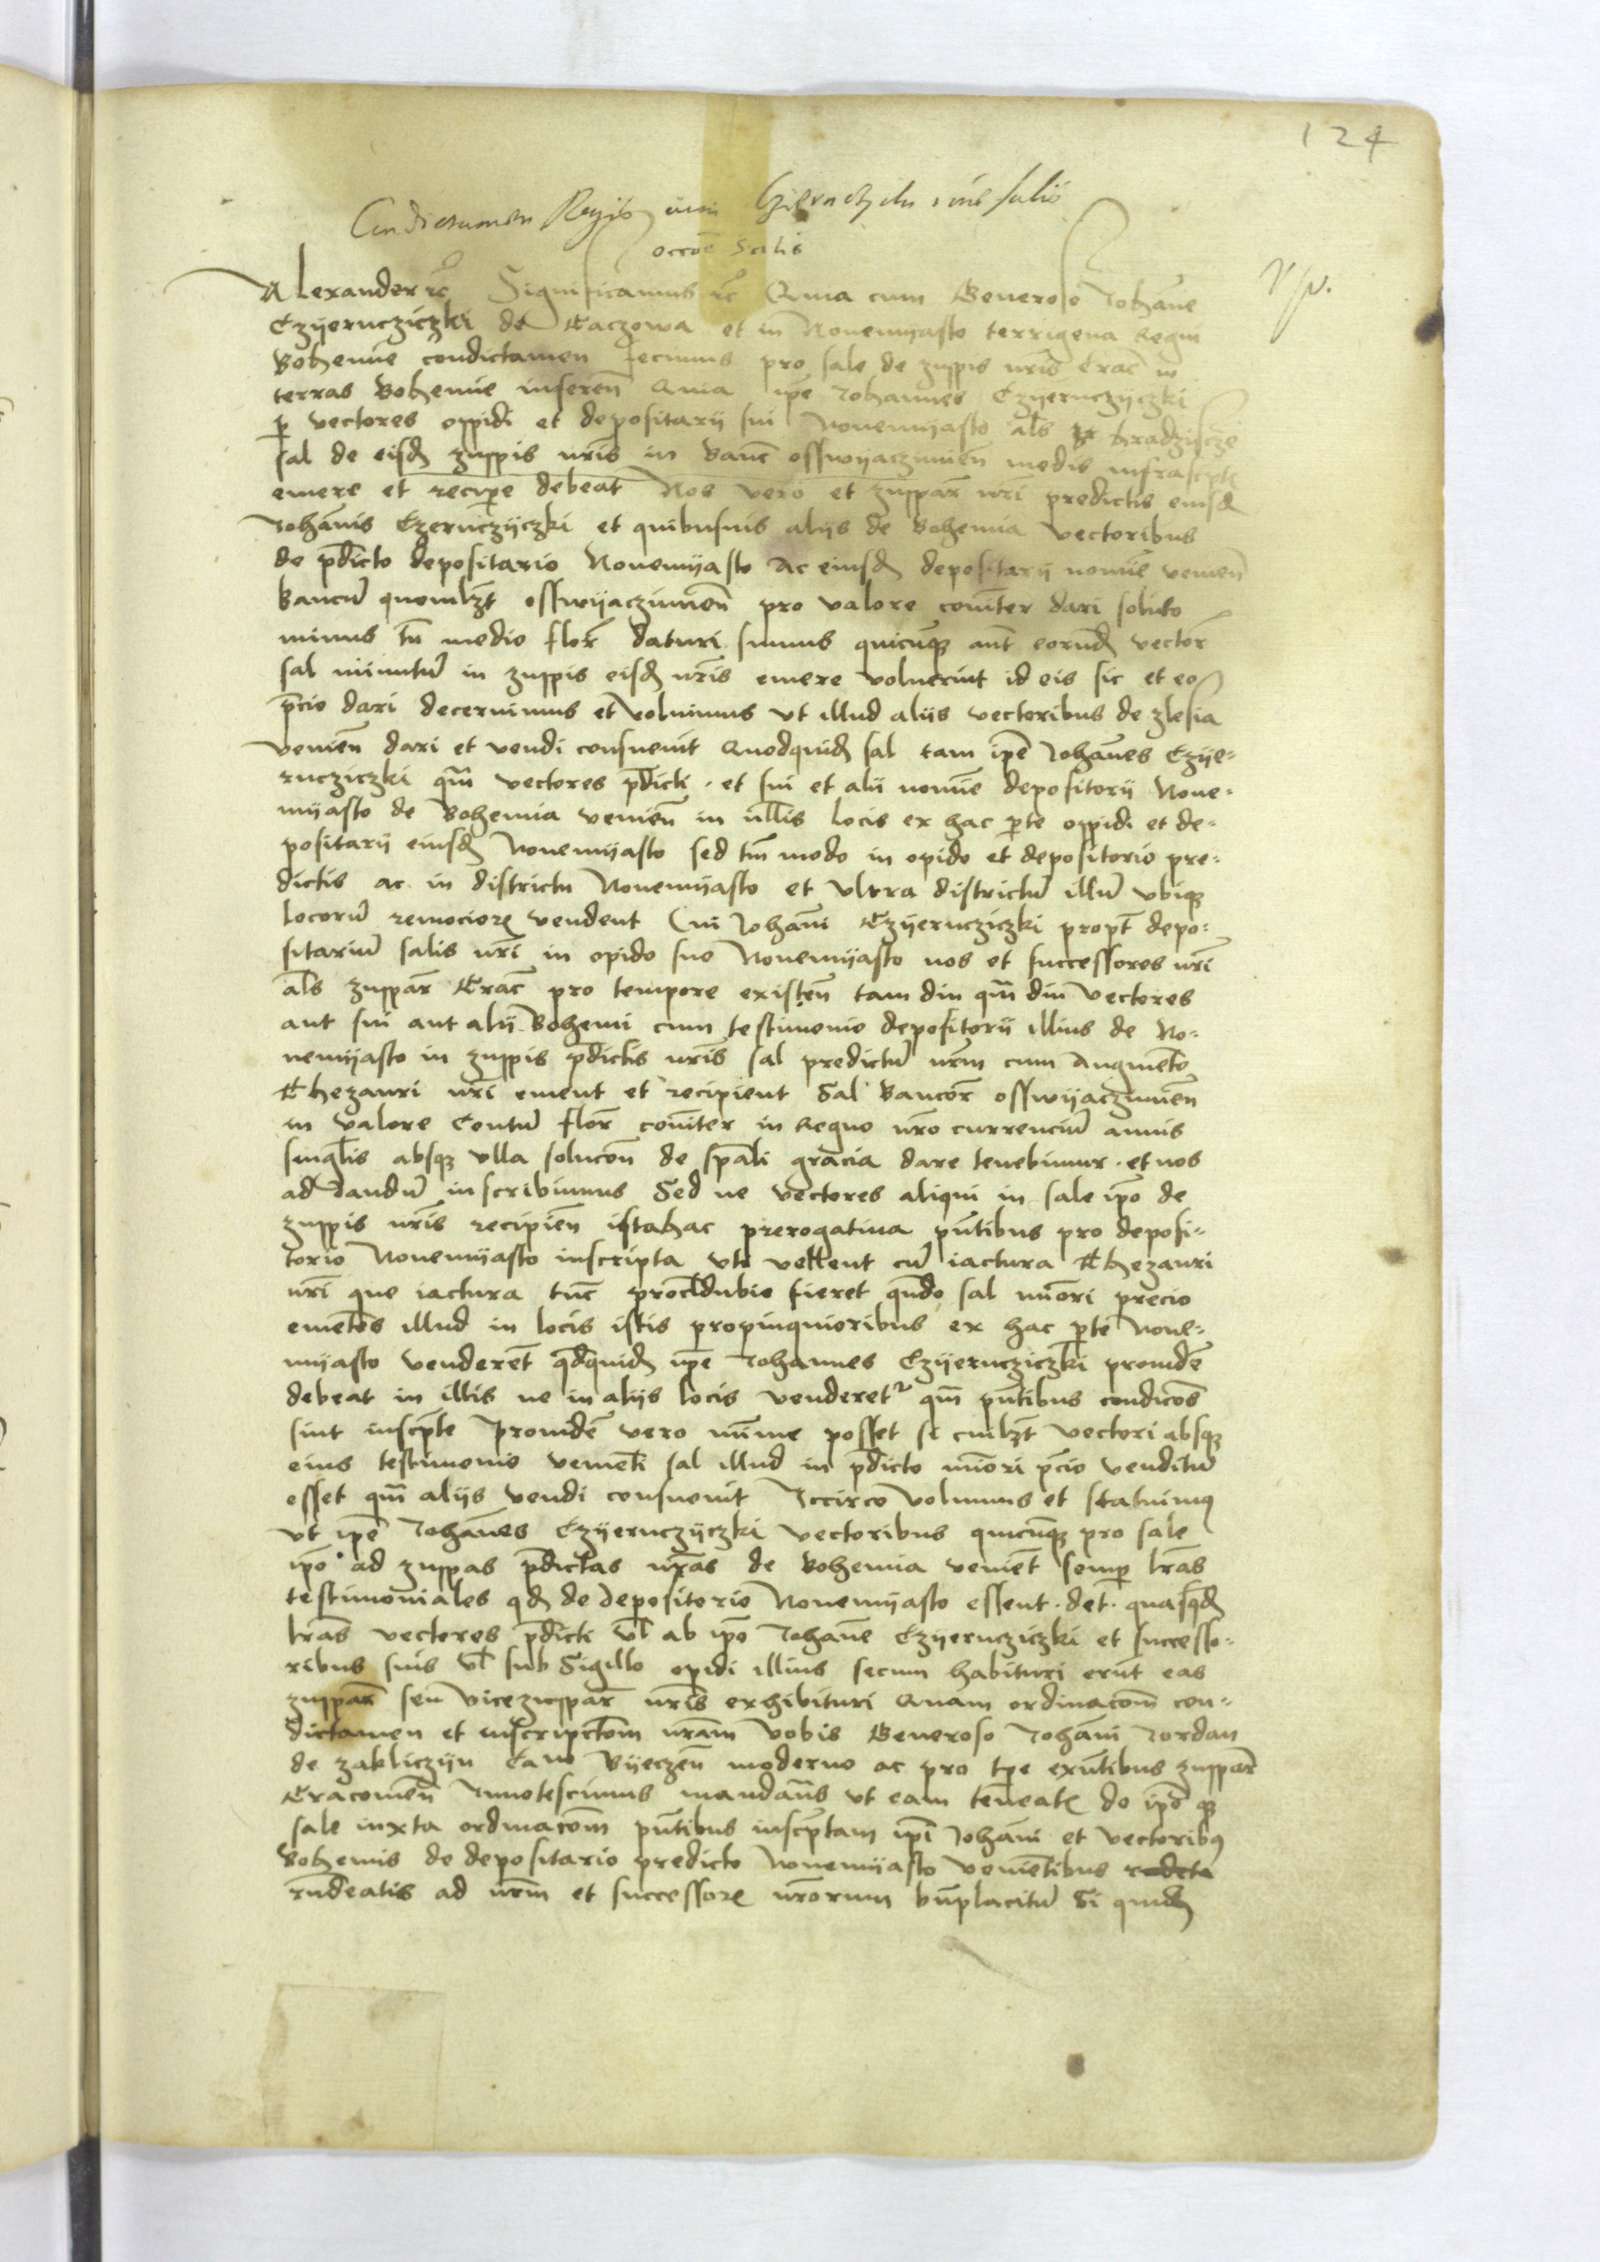 124
Condictamen Regis cum salis
occoe Salis
Alexander rc Significamus rc Quia cum Generoso Johane
Czyerncziczki de Caczowa et in Novemyasto terrigena Regni
Bohemie condictamen fecimus pro sale de zuppis nris Crac in
terras Bohemie inferen Quia ipe Johannes Czyernczyczki
p vectores oppidi et depositarij sui Novemyasto als hradziscze
sal de eisd zuppis nris in Banc osswyaczimien modis infrascpte
emere et recipere debeat Nos vero et zuppar nri predictis eiusd
Johanis Czernczyczki et quibusuis alijs de Bohemia vectoribus
de pdicto depositario Novemyasto Ac eiusd depositarij nomie venien
bancu quemlzt osswyaczimien pro valore coiter dari solito
minus tn medio flor daturi sumus quicunq aut eorund vector
sal minutu in zuppis eisd nris emere voluerint id eis sic et eo
pcio dari decernimus et volumus ut illud aliis vectoribus de zlesia
venien dari et vendi consuevit Quodquid sal tam ipe Johanes Czye-
rncziczki qm vectores pdicti . et sui et alij nomie depositorij Nove-
myasto de Bohemia venien in ullis locis ex hac pte oppidi et de-
positarij eiusd Novemyasto sed tm modo in opido et depositorio pre-
dictis ac in districtu Novemyasto et ultra districtu illu ubiq
locoru remocior vendent Cui Johani Czyerncziczki propt depo-
sitariu salis nri in opido suo Novemyasto nos et successores nri
als zuppar Crac pro tempore existen tam diu qm diu vectores
aut sui aut alij Bohemi cum testimonio depositorij illius de No-
vemyasto in zuppis pdictis nris sal predictu nrm cum augmento
Thezauri nri ement et recipient Sal Bancor osswyaczimien
in valore Centu flor coiter in Regno nro currenciu annis
singlis absq ulla solucon de spali gracia dare tenebimur . et nos
ad dandu inscribimus Sed ne vectores aliqui in sale ipo de
zuppis nris recipien ista hac prerogativa pntibus pro deposi-
torio Novemyasto inscripta uti vellent cu iactura Thezauri
nri que iactura tunc proculdubio fieret qndo sal minori precio
ementes illud in locis istis propinquioribus ex hac pte Nove-
myasto venderet qdquid ipe Johannes Czyerncziczki providere
debeat in illis ne in alijs locis venderetr qm pntibus condicoes
sint inscpte Providere vero minime posset si cuilzt vectori absq
eius testimonio venienti sal illud in pdicto minori pcio venditu
esset qm alijs vendi consuevit Iccirco volumus et statuimus
ut ipe Johanes Czyernczyczki vectoribus quicunq pro sale
ipo ad zuppas pdictas nras de Bohemia venient semp lras
testimoniales qd de depositorio Novemyasto essent . det . quasqd
lras vectores pdicti vl ab ipo Johane Czyerncziczki et successo-
ribus suis vl sub Sigillo opidi illius secum habituri erunt eas
zuppar seu vicezuppar nris exhibituri Quam ordinacom con-
dictamen et inscripctom nram vobis Generoso Johani Jordan
de zakliczyn Byeczen moderno ac pro tpe exntibus zuppar
Cracovien Innotescimus mandans ut eam teneatis de ipo q
sale iuxta ordinacom pntibus inscptam ipi Johani et vectoribus
Bohemis de depositario predicto Novemyasto venientibus
rndeatis ad nrm et successor nrorum bnplacitu Si quid